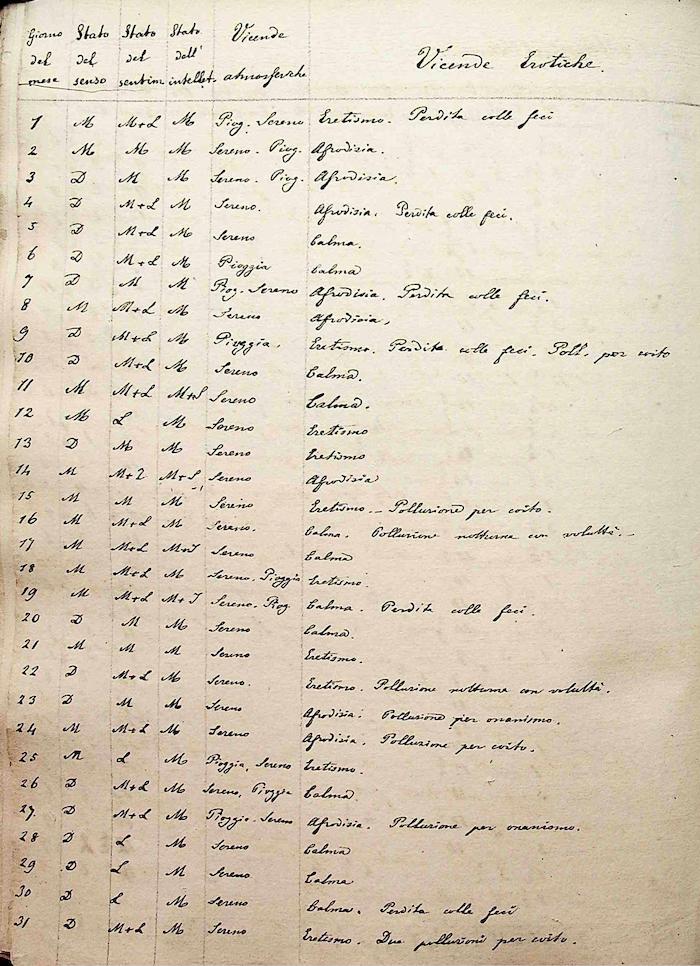 Giorno del mese Stato del senso Stato del sentim Stato dell' intellet. Vicende atmosferiche Vicende Erotiche.
1 M M+L M Piog. Sereno Eretismo. Perdita colle feci
2 M M M Sereno. Piog. Afrodisia.
3 D M M Sereno. Piog. Afrodisia.
4 D M+L M Sereno. Afrodisia. Perdita colle feci.
5 D M+L M Sereno Calma.
6 D M+L M Pioggia Calma
7 D M M Piog. Sereno Afrodisia. Perdita colle feci.
8 M M+L M Sereno Afrodisia.
9 D M+L M Pioggia. Eretismo. Perdita colle feci. Poll. per coito
10 D M+L M Sereno Calma.
11 M M+L M+S Sereno Calma.
12 M L M Sereno Eretismo
13 D M M Sereno Eretismo
14 M M+L M+S Sereno Afrodisia
15 M M M Sereno Eretismo — Polluzione per coito.
16 M M+L M Sereno. Calma. Polluzione notturna con voluttà. —
17 M M+L M+I Sereno Calma
18 M M+L M Sereno. Pioggia Eretismo.
19 M M+L M+I Sereno. Piog. Calma. Perdita colle feci.
20 D M M Sereno Calma.
21 M M M Sereno Eretismo.
22 D M+L M Sereno. Eretismo. Polluzione notturna con voluttà.
23 D M M Sereno Afrodisia. Polluzione per onanismo.
24 M M+L M Sereno Afrodisia. Polluzione per coito.
25 M L M Pioggia, Sereno Eretismo.
26 D M+L M Sereno, Pioggia Calma
27. D M+L M Pioggia. Sereno Afrodisia. Polluzione per onanismo.
28 D L M Sereno Calma
29 D L M Sereno Calma
30 D L M Sereno Calma. Perdita colle feci
31 D M+L M Sereno Eretismo. Due polluzioni per coito.